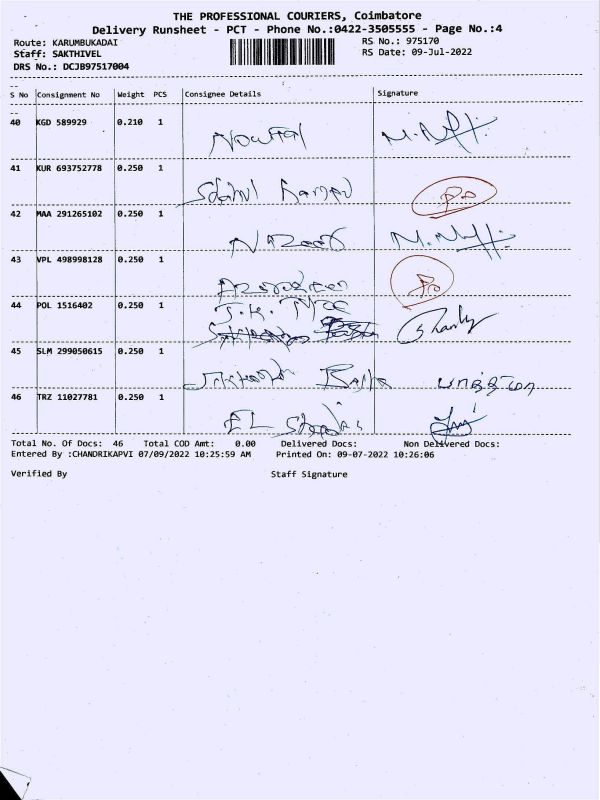 THE PROFESSIONAL COURIERS, Coimbatore
Delivery Runsheet - PCT - Phone No.:0422-3505555 - Page No.:4
Route: KARUMBUKADAI RS No.: 975170
Staff: SAKTHIVEL RS Date: 09-Jul-2022
DRS No.: DCJB97517004
S No Consignment No Weight PCS Consignee Details Signature
40 KGD 589929 0.210 1
41 KUR 693752778 0.250 1
42 MAA 291265102 0.250 1
43 VPL 498998128 0.250 1
44 POL 1516402 0.250 1 J.K.
45 SLM 299050615 0.250 1
46 TRZ 11027781 0.250 1 EL
Total No. Of Docs: 46 Total COD Amt: 0.00 Delivered Docs: Non Delivered Docs:
Entered By :CHANDRIKAPVI 07/09/2022 10:25:59 AM Printed On: 09-07-2022 10:26:06
Verified By Staff Signature